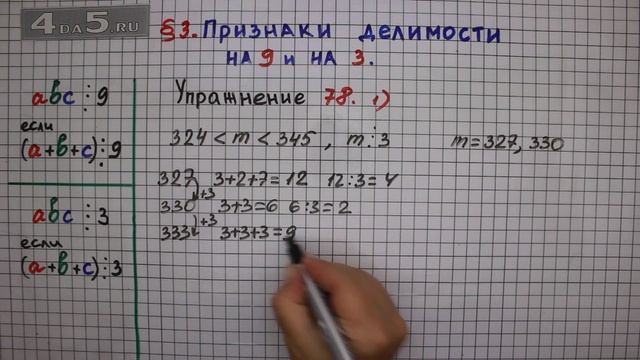 4DA5.RU
§3. Признаки делимости
на 9 и на 3.
abc ⋮ 9
если
(a+b+c) ⋮ 9
abc ⋮ 3
если
(a+b+c) ⋮ 3
Упражнение 78. 1)
324 < m < 345 , m ⋮ 3
m = 327, 330
327 3+2+7=12 12:3=4
+3
330 3+3=6 6:3=2
+3
333 3+3+3=9